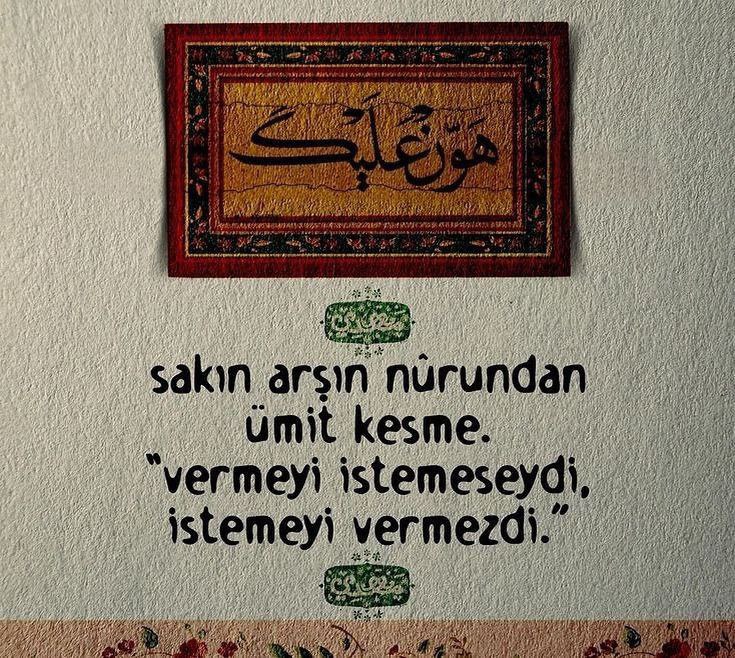 هَوِّنْ عَلَيْكَ
sakın arşın nûrundan
ümit kesme.
"vermeyi istemeseydi,
istemeyi vermezdi."